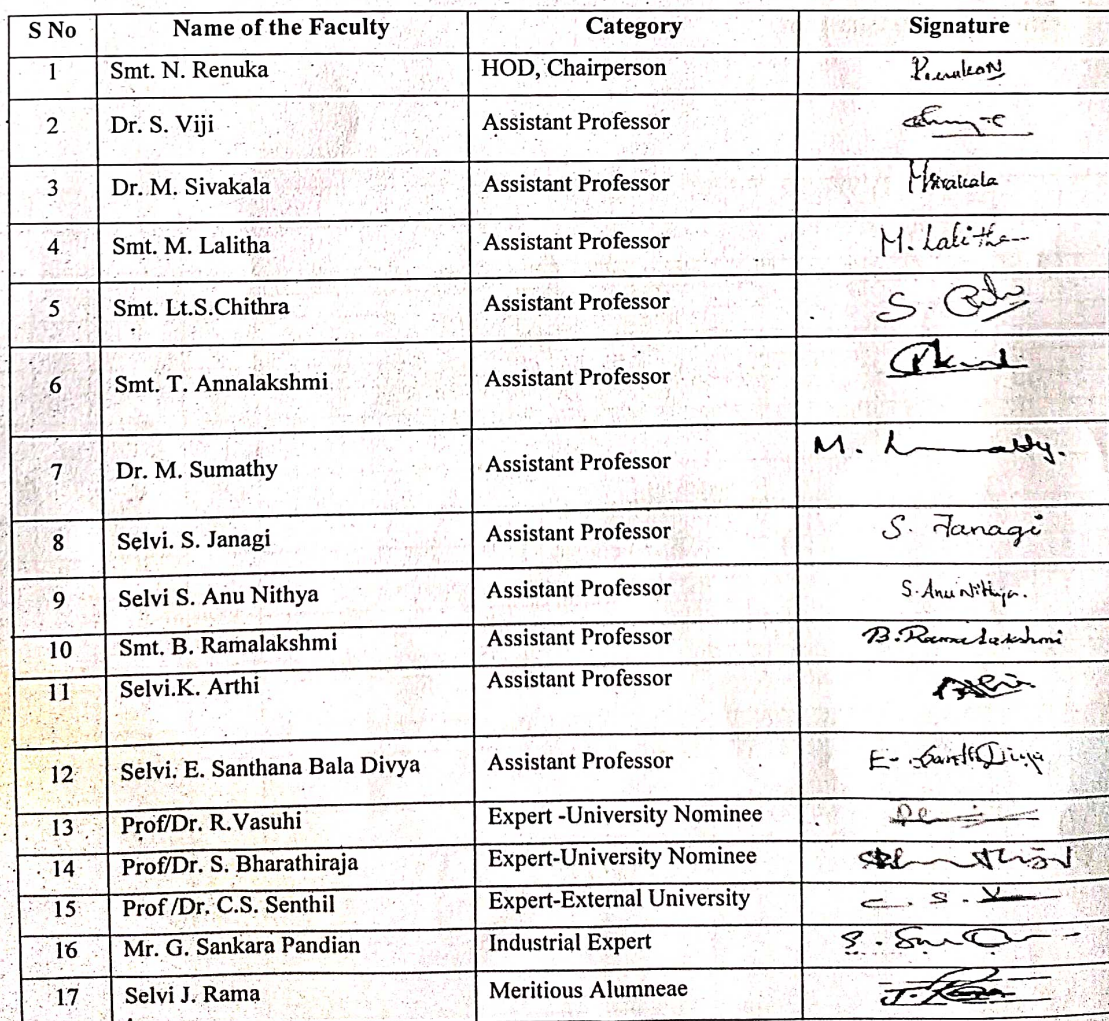 S No Name of the Faculty Category Signature
1 Smt. N. Renuka HOD, Chairperson
2 Dr. S. Viji Assistant Professor
3 Dr. M. Sivakala Assistant Professor MSivakala
4 Smt. M. Lalitha Assistant Professor M. Lalitha
5 Smt. Lt.S.Chithra Assistant Professor S.
6 Smt. T. Annalakshmi Assistant Professor
7 Dr. M. Sumathy Assistant Professor M.
8 Selvi. S. Janagi Assistant Professor S. Janagi
9 Selvi S. Anu Nithya Assistant Professor S. Anu Nithya.
10 Smt. B. Ramalakshmi Assistant Professor B. Ramalakshmi
11 Selvi.K. Arthi Assistant Professor
12 Selvi. E. Santhana Bala Divya Assistant Professor E.
13 Prof/Dr. R.Vasuhi Expert -University Nominee
14 Prof/Dr. S. Bharathiraja Expert-University Nominee
15 Prof /Dr. C.S. Senthil Expert-External University C. S.
16 Mr. G. Sankara Pandian Industrial Expert
17 Selvi J. Rama Meritious Alumneae J. Rama